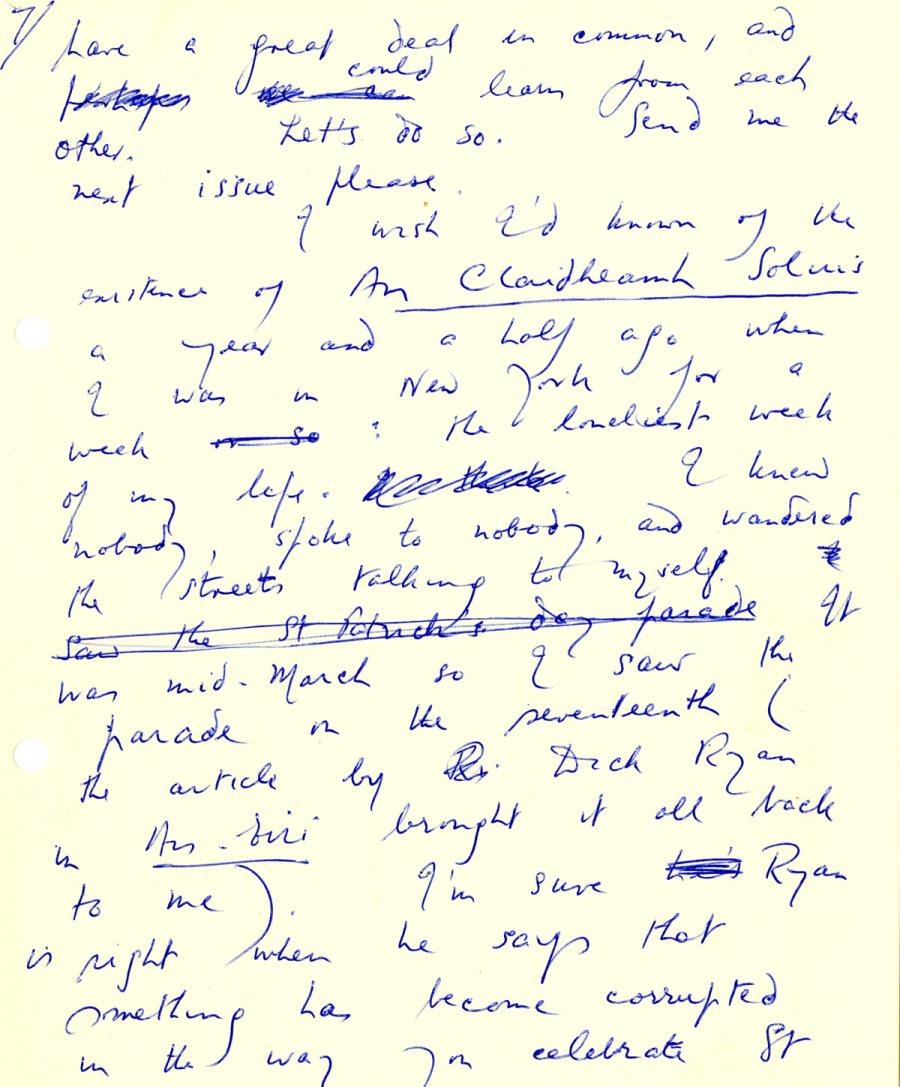 7/
have a great deal in common, and
could
perhaps we can learn from each
other. Let's do so. Send me the
next issue please.
I wish I'd known of the
existence of An Claidheamh Soluis
a year and a half ago when
I was in New York for a
week or so : the loneliest week
of my life. I knew
nobody, spoke to nobody, and wandered
the streets talking to myself.
saw the St Patrick's day parade It
was mid-March so I saw the
parade on the seventeenth (
the article by Dick Ryan
in An-Eiri brought it all back
to me). I'm sure he's Ryan
is right when he says that
something has become corrupted
in the way you celebrate St